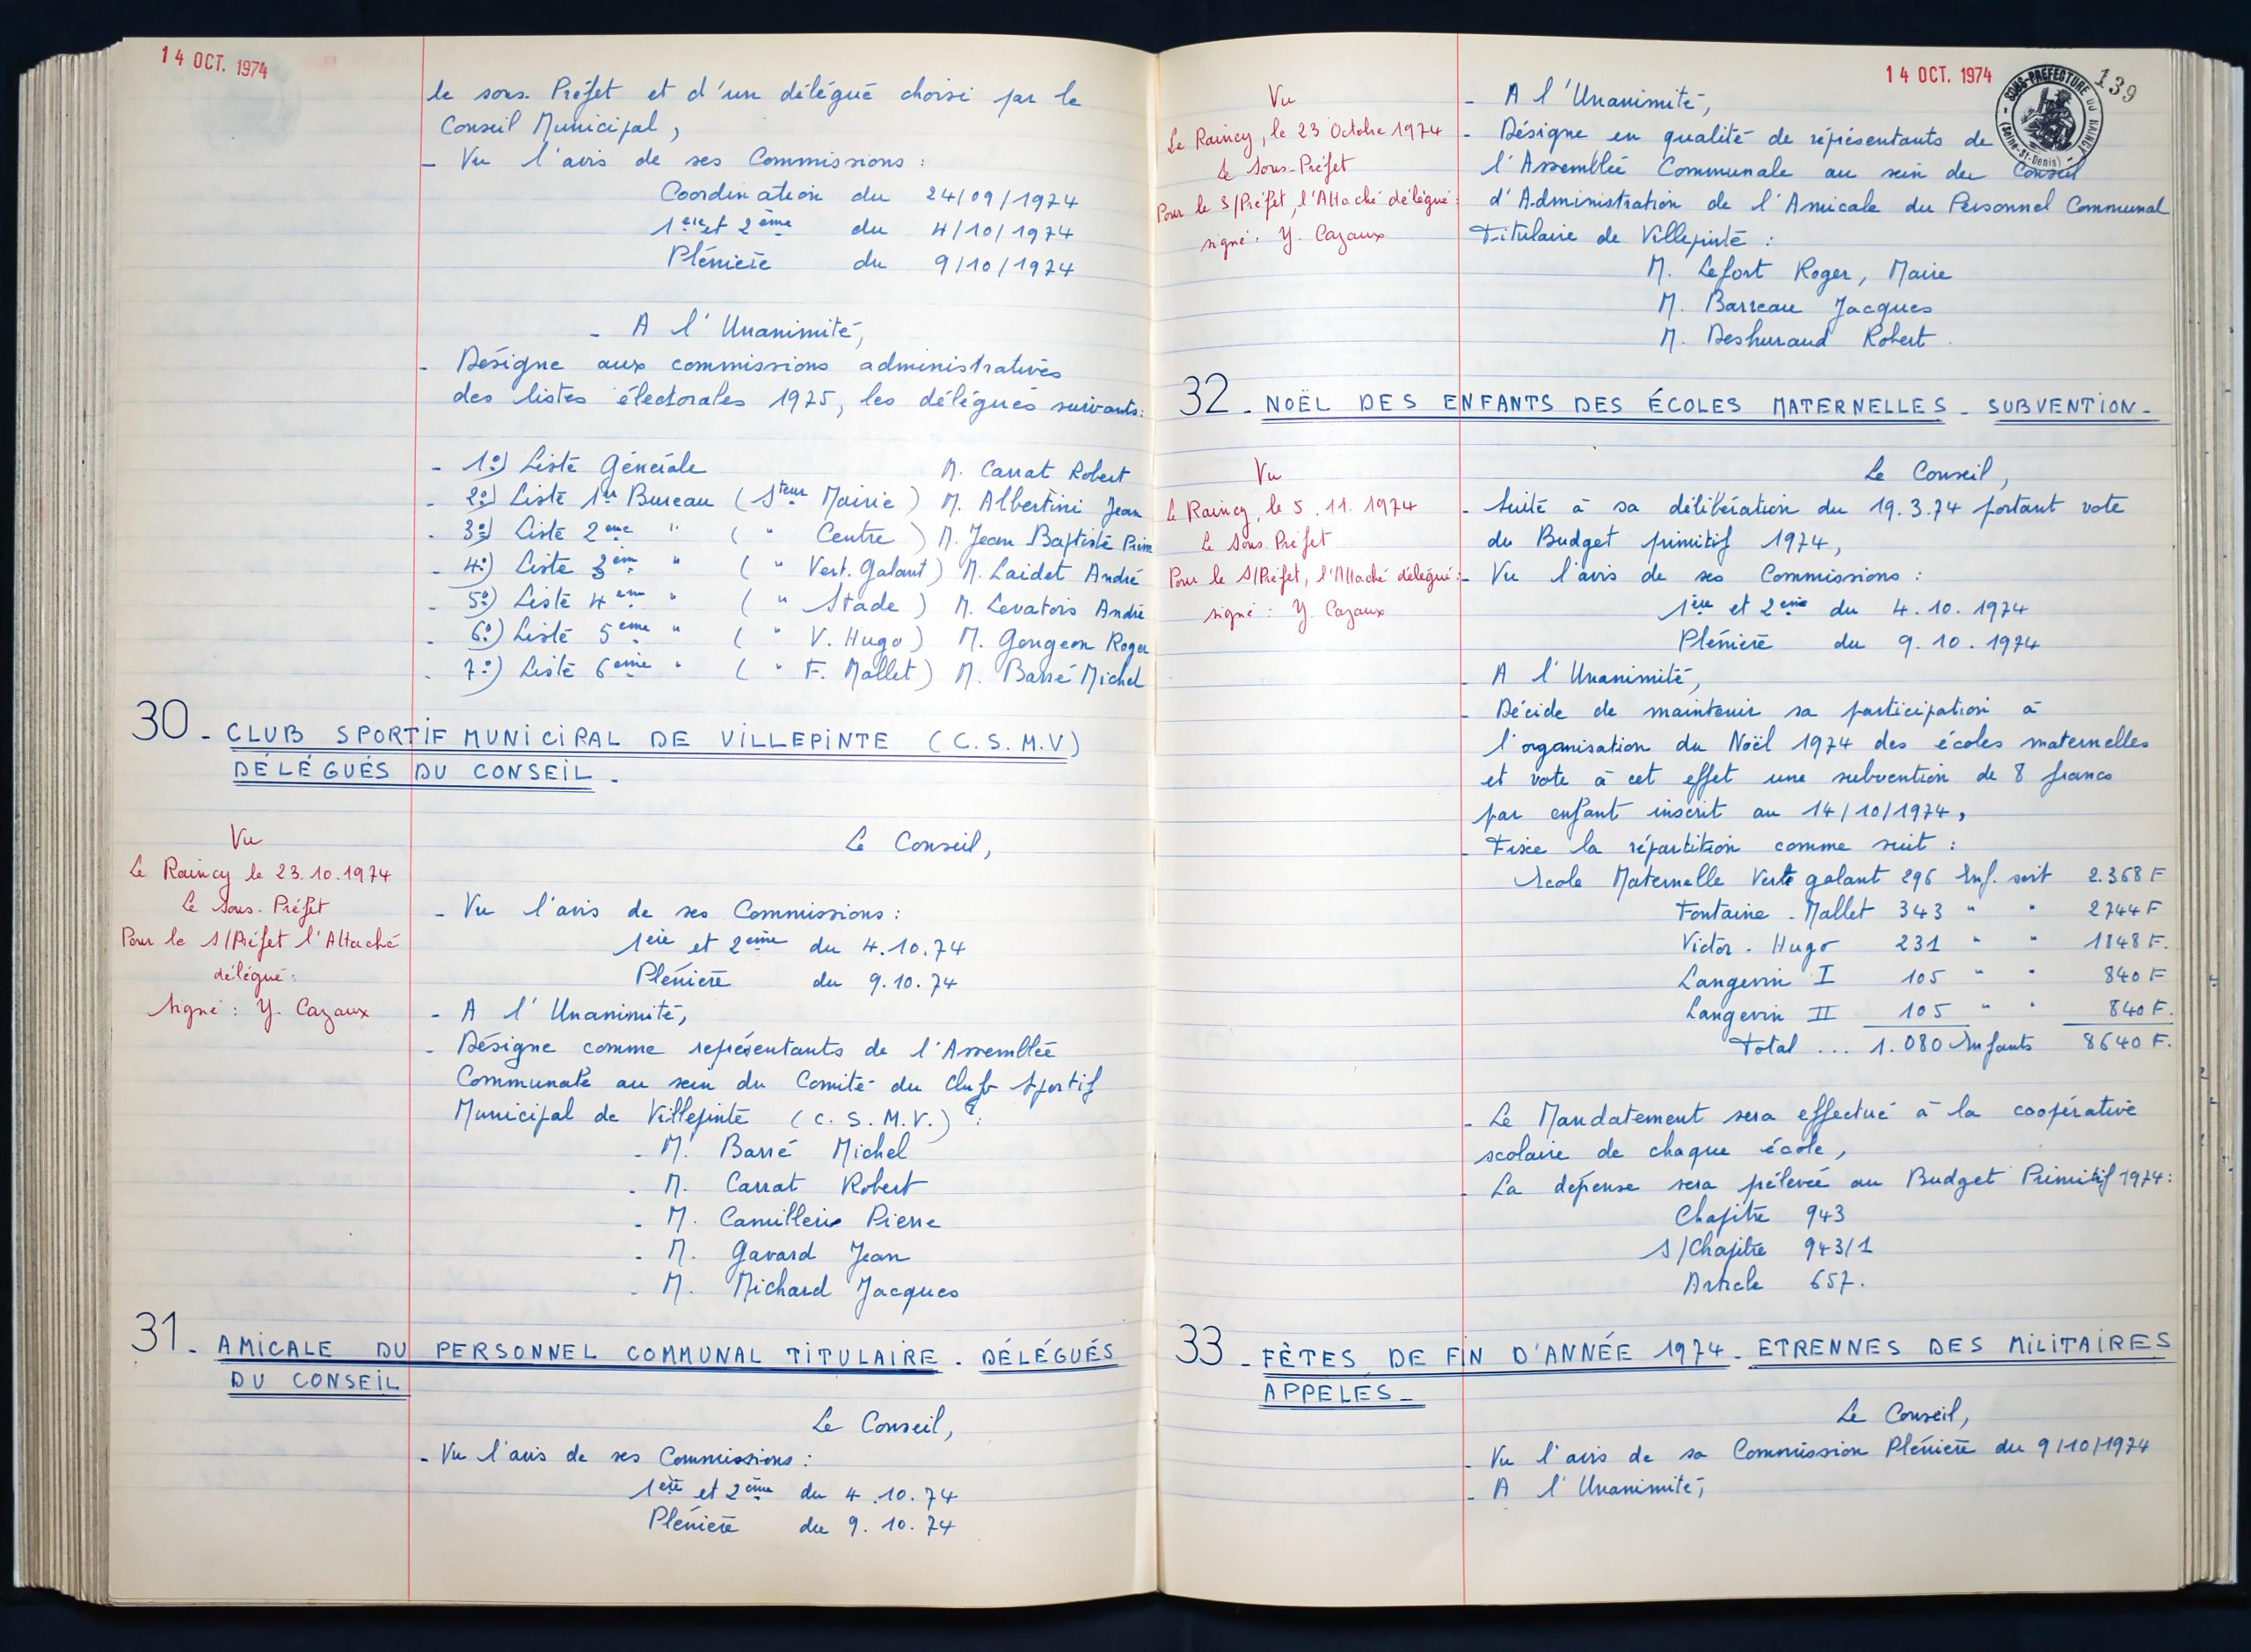 14 OCT. 1974
le sous-Préfet et d'un délégué choisi par le
Conseil Municipal,
- Vu l'avis de ses Commissions :
Coordination du 24/09/1974
1ère et 2ème du 4/10/1974
Plénière du 9/10/1974
- A l'Unanimité,
- Désigne aux commissions administratives
des listes électorales 1975, les délégués suivants:
- 1º) Liste Générale M. Carrat Robert
- 2º) Liste 1er Bureau (Steur Mairie) M. Albertini Jean
- 3º) Liste 2ème " ( " Centre ) M. Jean Baptiste Prim
- 4º) Liste 3ème " ( " Vert. Galant) M. Laidet André
- 5º) Liste 4ème " ( " Stade ) M. Levatois André
- 6º) Liste 5ème " ( " V. Hugo) M. Gongeon Roger
- 7º) Liste 6ème " ( " F. Mallet) M. Barré Michel
30 - CLUB SPORTIF MUNICIPAL DE VILLEPINTE (C.S.M.V)
DÉLÉGUÉS DU CONSEIL -
Vu
Le Raincy le 23.10.1974
Le Sous-Préfet
Pour le S/Préfet l'Attaché
délégué:
Signé: Y. Cazaux
Le Conseil,
- Vu l'avis de ses Commissions:
1ère et 2ème du 4.10.74
Plénière du 9.10.74
- A l'Unanimité,
- Désigne comme représentants de l'Assemblée
Communale au sein du Comité du Club Sportif
Municipal de Villepinte (C.S.M.V.) :
- M. Barré Michel
- M. Carrat Robert
- M. Camilleri Pierre
- M. Gavard Jean
- M. Michard Jacques
31 - AMICALE DU PERSONNEL COMMUNAL TITULAIRE - DÉLÉGUÉS
DU CONSEIL
Le Conseil,
- Vu l'avis de ses Commissions :
1ère et 2ème du 4.10.74
Plénière du 9.10.74
14 OCT. 1974
139
SOUS-PREFECTURE DU RAINCY
(Seine-St-Denis)
Vu
Le Raincy, le 23 Octobre 1974
Le Sous-Préfet
Pour le S/Préfet, l'Attaché délégué:
signé: Y. Cazaux
- A l'Unanimité,
- Désigne en qualité de réprésentants de
l'Assemblée Communale au sein du Conseil
d'Administration de l'Amicale du Personnel Communal
Titulaire de Villepinte :
M. Lefort Roger, Maire
M. Barreau Jacques
M. Deshuraud Robert.
32 - NOËL DES ENFANTS DES ÉCOLES MATERNELLES - SUBVENTION -
Vu
Le Raincy, le 5.11.1974
Le Sous-Préfet
Pour le S/Préfet, l'Attaché délégué:
signé: Y. Cazaux
Le Conseil,
- Suite à sa délibération du 19.3.74 portant vote
du Budget primitif 1974,
- Vu l'avis de ses Commissions :
1ère et 2ème du 4.10.1974
Plénière du 9.10.1974
- A l'Unanimité,
- Décide de maintenir sa participation à
l'organisation du Noël 1974 des écoles maternelles
et vote à cet effet une subvention de 8 francs
par enfant inscrit au 14/10/1974,
- Fixe la répartition comme suit :
Ecole Maternelle Vert galant 296 Enf. soit 2.368 F
Fontaine-Mallet 343 " " 2744 F
Victor-Hugo 231 " " 1848 F.
Langevin I 105 " " 840 F
Langevin II 105 " " 840 F.
Total ... 1.080 Enfants 8640 F.
- Le Mandatement sera effectué à la coopérative
scolaire de chaque école,
- La dépense sera prélevée au Budget Primitif 1974:
Chapitre 943
S/Chapitre 943/1
Article 657.
33 - FÊTES DE FIN D'ANNÉE 1974 - ETRENNES DES MILITAIRES
APPELES -
Le Conseil,
- Vu l'avis de sa Commission Plénière du 9/10/1974
- A l'Unanimité,